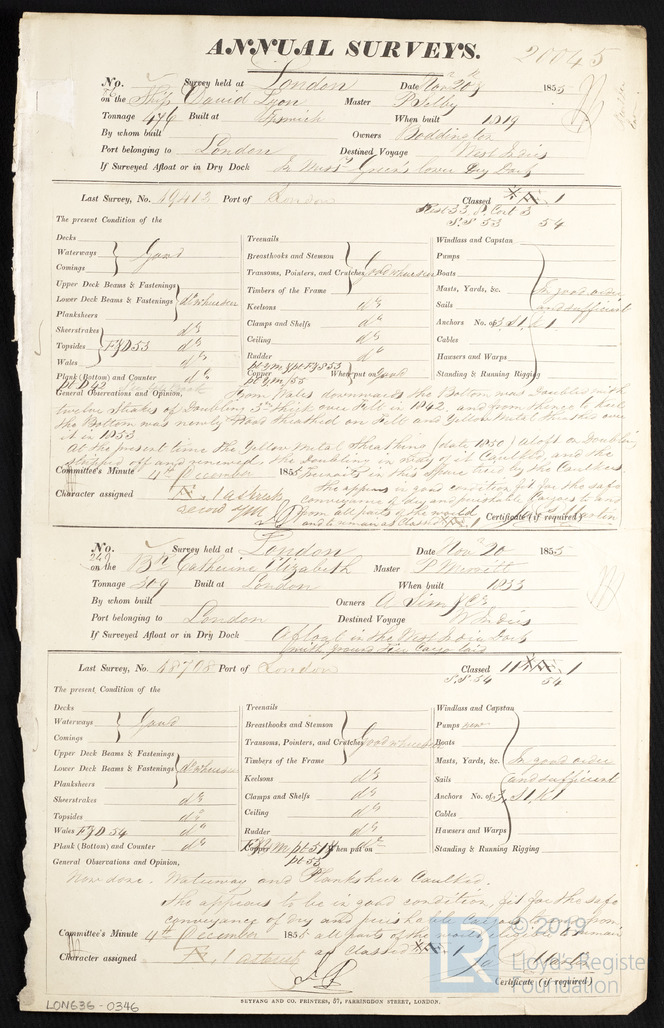 ANNUAL SURVEYS.
20045
No. Survey held at London Date Novr 20th 1855
on the Ship David Lyon Master P Selby
Tonnage 476 Built at Ipswich When built 1819
By whom built Owners Boddington
Port belonging to London Destined Voyage West Indies
If Surveyed Afloat or in Dry Dock In Messrs Green's lower Dry Dock
Last Survey, No. 19413 Port of London Classed 1
S.S 53 54
The present Condition of the
Decks
Waterways Good
Comings
Upper Deck Beams & Fastenings
Lower Deck Beams & Fastenings do where seen
Planksheers
Sheerstrakes do
Topsides F&D 53 do
Wales do
Plank (Bottom) and Counter do
pt D 42
Treenails
Breasthooks and Stemson
Transoms, Pointers, and Crutches Good where seen
Timbers of the Frame
Keelsons do
Clamps and Shelfs do
Ceiling do
Rudder do
Copper When put on Good
pt ym /55
Windlass and Capstan
Pumps
Boats
Masts, Yards, &c. In good order
Sails and sufficient
Anchors No. of 3 S1, K1
Cables
Hawsers and Warps
Standing & Running Rigging
General Observations and Opinion, From Wales downwards the Bottom was Doubled with
twelve strakes of Doubling 3 in thick over Felt in 1842, and from thence to Keel
the Bottom was newly Wood sheathed on Felt and Yellow Metal sheathed over
it in 1853
At the present time the Yellow Metal Sheathing (date 1850) aloft on Doubling
stripped off and renewed, the Doubling in way of it Caulked, and the
Treenails in this space tried by the Caulkers,
She appears in good condition, fit for the safe
conveyance of dry and perishable Cargoes to and
from all parts of the world
and to remain as Classed 1
Committee's Minute 4th December 1855
Character assigned 1 asterisk
record YM
Certificate (if required)
No. Survey held at London Date Novr 20 1855
on the Bk Catherine Elizabeth Master P Merrett
Tonnage 309 Built at London When built 1833
By whom built Owners A Sim & Co
Port belonging to London Destined Voyage W Indies
If Surveyed Afloat or in Dry Dock Afloat in the West India Dock
with ground tier Cargo laid
Last Survey, No. 18708 Port of London Classed 11 1
S.S 54 54
The present, Condition of the
Decks
Waterways Good
Comings
Upper Deck Beams & Fastenings
Lower Deck Beams & Fastenings do where seen
Planksheers
Sheerstrakes do
Topsides do
Wales F&D 54 do
Plank (Bottom) and Counter do
Treenails
Breasthooks and Stemson
Transoms, Pointers, and Crutches Good where seen
Timbers of the Frame
Keelsons do
Clamps and Shelfs do
Ceiling do
Rudder do
Copper When put on do
pt 55
Windlass and Capstan
Pumps new
Boats
Masts, Yards, &c. In good order
Sails and sufficient
Anchors No. of 3, S1, K1
Cables
Hawsers and Warps
Standing & Running Rigging
General Observations and Opinion,
Now done. Waterway and Planksheer Caulked.
She appears to be in good condition, fit for the safe
conveyance of dry and perishable Cargoes to and from
all parts of the world and to remain
as Classed 1
Committee's Minute 4th December 1855
Character assigned 1 asterisk
Certificate (if required)
SEYFANG AND CO. PRINTERS, 57, FARRINGDON STREET, LONDON.
LON636-0346
LR © 2019
Lloyd's Register
Foundation